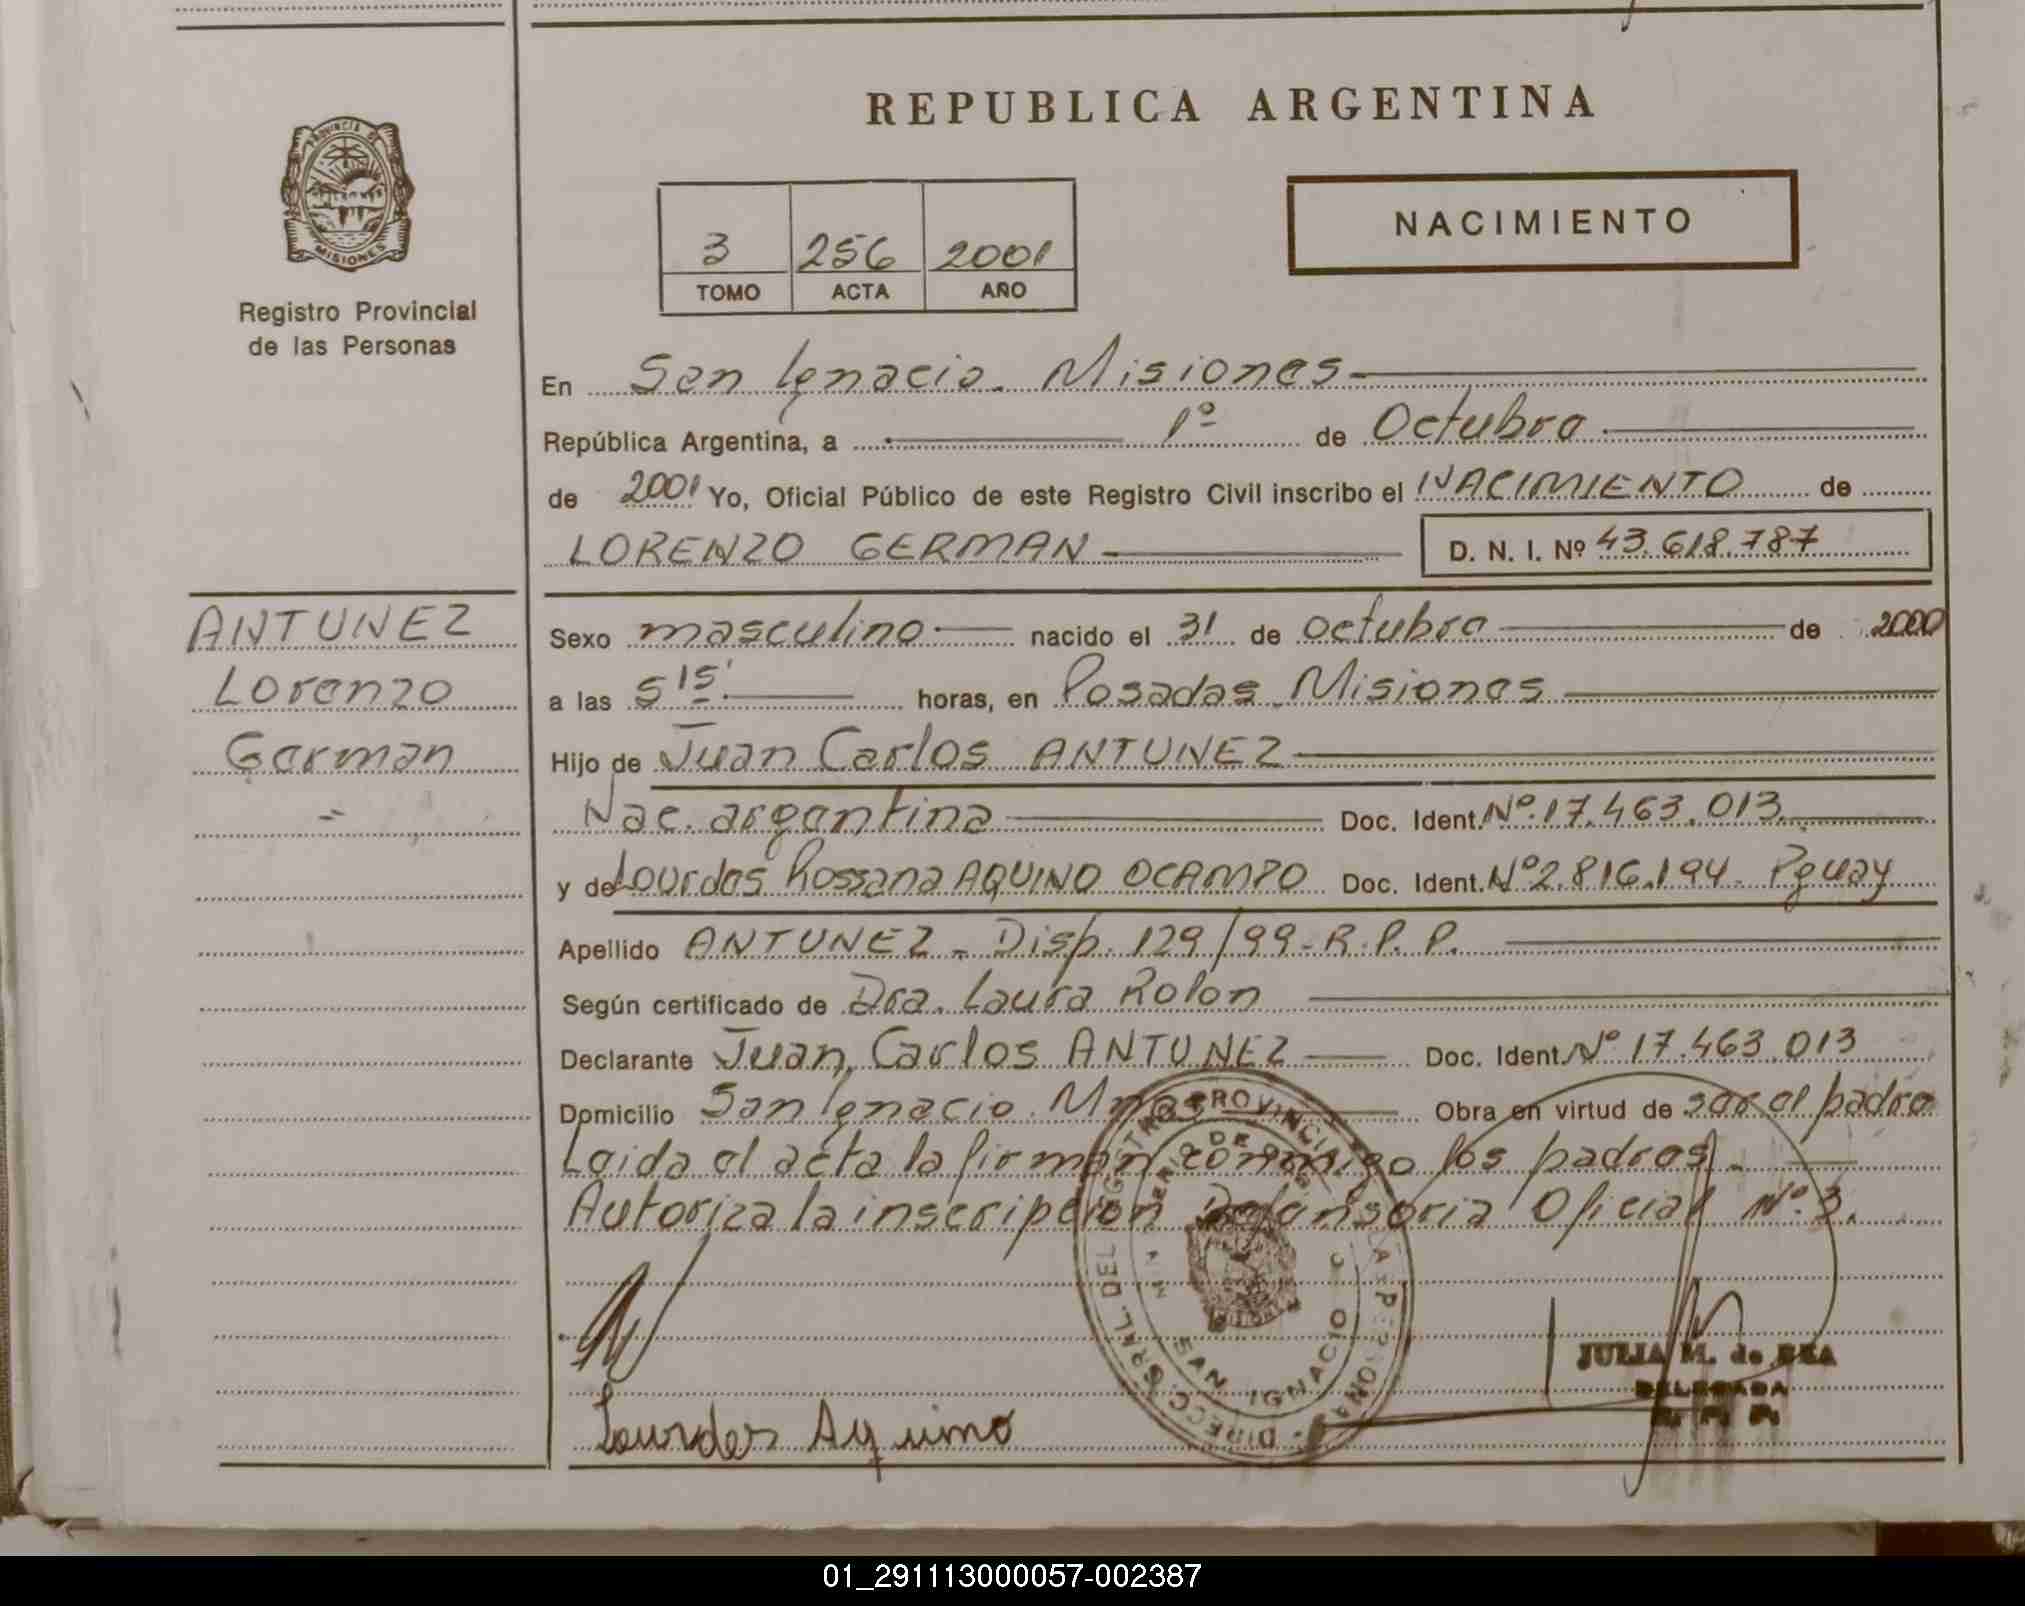 REPUBLICA ARGENTINA
PROVINCIA DE
MISIONES
Registro Provincial
de las Personas
3 256 2001
TOMO ACTA AÑO
NACIMIENTO
En San Ignacio. Misiones
República Argentina, a 1º de Octubre
de 2001 Yo, Oficial Público de este Registro Civil inscribo el NACIMIENTO de
LORENZO GERMAN D. N. I. Nº 43.618.787
ANTUNEZ
Lorenzo
German
Sexo masculino nacido el 31 de octubre de 2000
a las 5 15' horas, en Posadas. Misiones
Hijo de Juan Carlos ANTUNEZ
Nac. argentina Doc. Ident. Nº.17.463.013.
y de Lourdes Rossana AQUINO OCAMPO Doc. Ident. Nº2.816.194- Pguay
Apellido ANTUNEZ - Disp. 129/99-R.P.P.
Según certificado de Dra. Laura Rolon
Declarante Juan Carlos ANTUNEZ Doc. Ident. Nº 17.463.013
Domicilio San Ignacio. Mnes Obra en virtud de ser el padre
Leida el acta la firman conmigo los padres.
Autoriza la inscripcion Defensoria Oficial Nº.3.
DIRECC. GRAL. DEL REGISTRO PROVINCIAL DE LAS PERSONAS
SAN IGNACIO
JULIA M. de REA
DELEGADA
R. P. P.
Lourdes Aquino
01_291113000057-002387